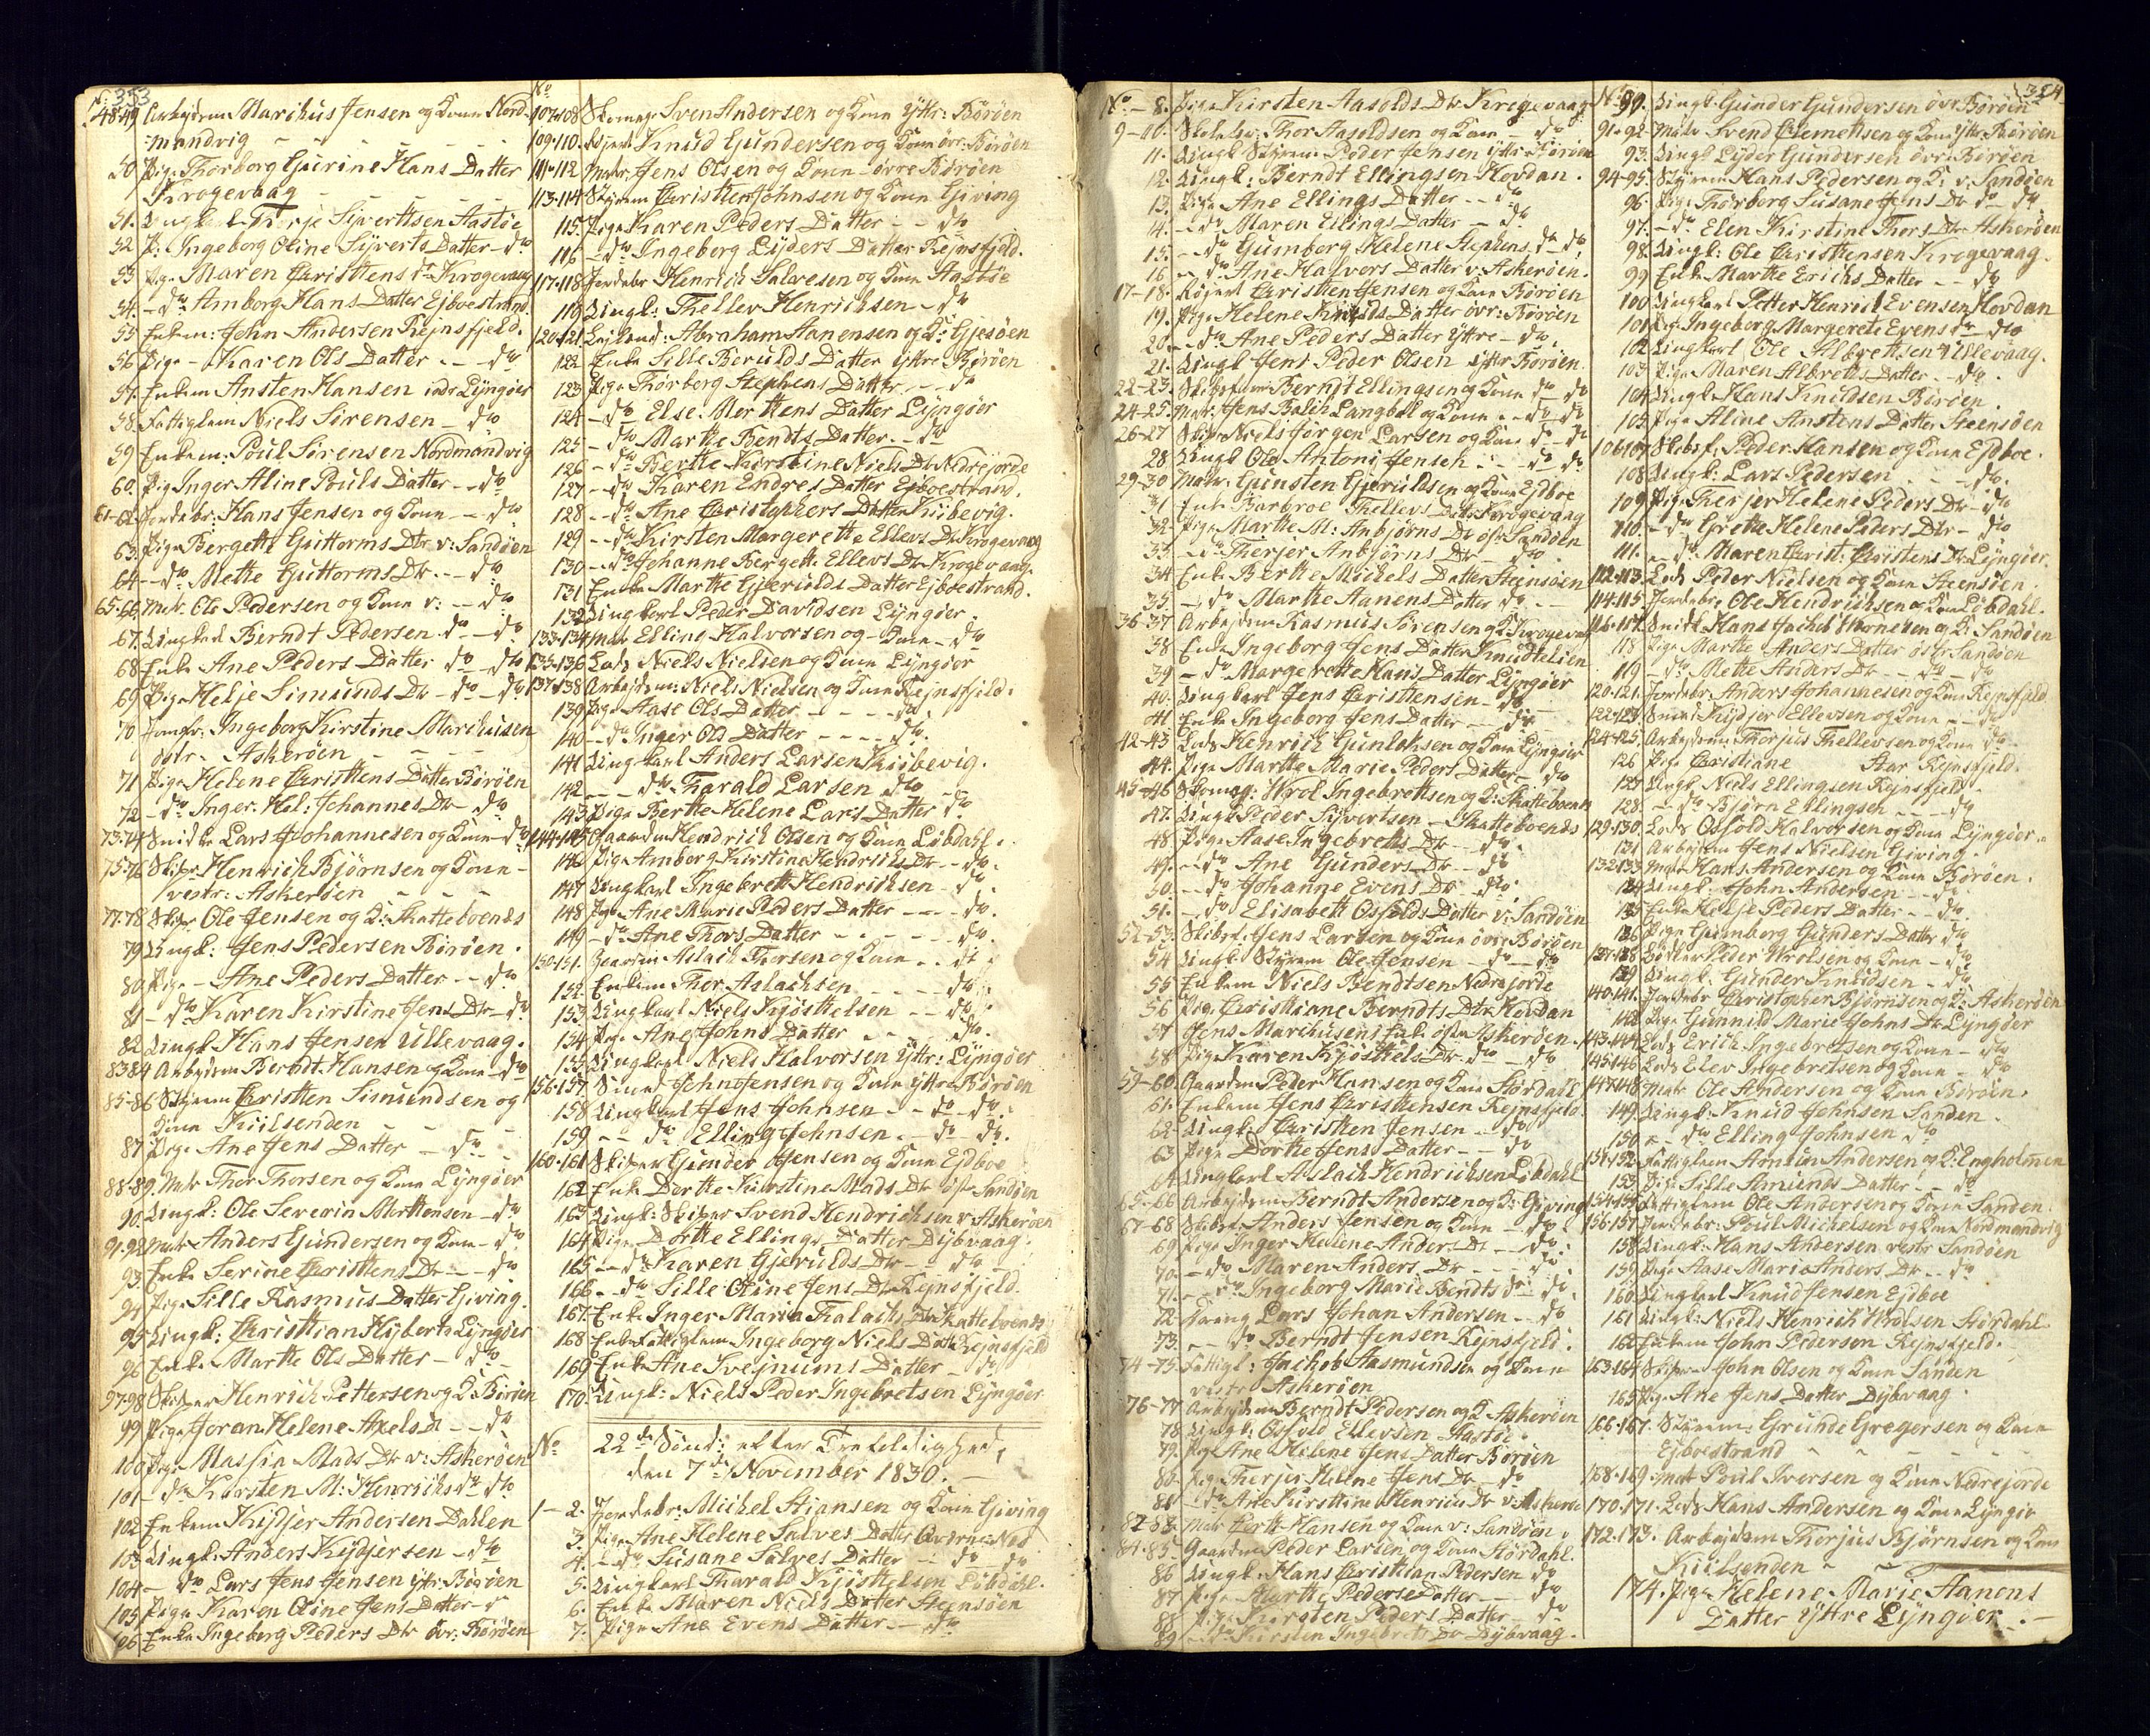 353
48-49 Arbejdsm Marchus Jensen og Kone Nord-
mandvig
50 Pige Thorborg Gurine Hans Datter
Krogevaag
51. Ungkarl Terje Sjverttsen Aastöe
52 P: Ingeborg Oline Sijverts Datter - do
53 Pige Maren Christtens dr Krogevaag
54. - do Amborg Hans Datter Ejboestrand
55 Enkem: John Andersen Rejnsfjeld.
56 Pige - Karen Ols Datter - - do
57. Enkem Ansten Hansen Lyngöer
58. Fattiglem Niels Sörensen - do
59 Enkem: Poul Sörensen Nordmandvig
60. Pig Inger Aline Pouls Datter - do
61-62. Jordebr: Hans Jensen og Kone - do
63. Pige Bergette Guttorms Dtr v: Sandöen
64 - do Mette Guttorms Dtr - - do
65-66. Matr. Ole Pedersen og Kone v: - do
67. Ungkarl Berndt Pedersen do - do
68 Enke Ane Peders Datter do - do
69 Pige Helje Simunds Dtr - do - do
70 Jomfr: Ingeborg Kirstine Marchussen
östr. Askeröen
71 Pige Helene Christtens Datter Böröen
72 - do Inger Hel: Johannes Dtr - do
73-74 Snidker Lars Johannesen og Kone - do
75-76 Skiper Henrich Björnsen og Kone -
vestr: Askeröen
77-78 Skiper Ole Jensen og K: Skatteboends
79 Ungk: Jens Pedersen Böröen.
80 Pige - Ane Peders Datter - - do
81 - do Karen Kirstine Jens Dtr - do
82 Ungk Hans Jensen Ullevaag.
83-84 Arbejdsm Berndt Hansen og Kone - do
85-86 Styrem Christten Simundsen og
Kone Kiilsenden
87 Pige Ane Jens Datter - do
88-89. Matr Thor Thorsen og Kone Lyngöer
90. Ungk: Ole Severin Morttensen - do
91-92 Matr Anders Gundersen og Kone - do
93 Enke Serine Christtens Dtr - - do
94 Pige Sille Rasmus Datter Giving.
95 Ungk: Christtian Hijberts Lyngöer
96 Enke Marthe Ols Datter - do
97-98 Skiper Henrich Pettersen og K: Böröen
99 Pige Joran Helene Axels d - - do
100 Pige Massia Mads Dtr v: Askeröen
101 - do Kirsten M: Henrichs dr do
102 Enkem Kijdjer Andersen Dahlen
103 Ungk: Anders Kijdjersen - do
104 - do Lars Jens Jensen ytr: Böröen
105 Pige Karen Oline Jens Datter - do
106 Enke Ingeborg Peders Dtr övr: Böröen
No
107-108 Skomagr Sven Andersen og Kone Yttr: Böröen
109-110. Röjert Knud Gundersen og Kone övr: Böröen
111-112 Matr Jens Olsen og Kone övre Böröen
113-114 Styrem Christten Johnsen og Kone Giving
115. Pige Karen Peders Datter - - do
116 - do Ingeborg Lijders Datter Rejnsfjeld.
117-118 Jordebr Henrich Salvesen og Kone Aastöe
119 Ungk: Thellev Henrichsen - do
120-121 Lejlend: Abraham Aanensen og K: Gjesöen
122 Enke Sille Beruld Datter yttre Böröen
123 Pige Thorborg Stephens Datter - - do
124 - do Else Morttens Datter Lyngöer
125 - do Marthe Bendts Datter. - do
126 - do Berthe Kirstine Niels Dtr Nedrejorde
127 - do Karen Endres Datter Ejboestrand.
128 - do Ane Christophers Datter Kiibevig.
129 - do Kirsten Margerette Ellevs Dr Krogevaag
130 - do Johanne Bergette Ellevs Dr Krogevaag.
131 Enke Marthe Gjerulds Datter Ejboestrand.
132 Ungkarl Peder Davidsen Lyngöer
133-134 Matr Elling Halvorsen og Kone - do
135-136 Lods Niels Nielsen og Kone Lyngöer
137-138 Arbejdsm: Niels Nielsen og Kone Rejnsfjeld.
139 Pige Aase Ols Datter - - - do
140 - do Inger Ols Datter - - - - do.
141 Ungkarl Anders Larsen Kiibevig.
142 - - do Tharald Larsen do
143 Pige Berthe Helene Lars Datter do
144-145 Gaardm Hendrich Olsen og Kone Löbdahl.
146 Pige Amborg Kirstine Hendrichs Dtr - - do.
147 Ungkarl Ingebrett Hendrichsen - do.
148 Pige Ane Marie Peders Datter - - - do.
149 - do Ane Thors Datter - - - - - do.
150-151. Gaardm Aslach Thorsen og Kone - - do
152 Enkem Thor Aslachsen - - - - do
153 Ungkarl Niels Kjösttelsen - - do
154 Pige Ane Johns Datter - - - do.
155 Ungkarl Niels Halvorsen Yttr: Lyngöer
156-157. Smed John Jensen og Kone yttre Böröen
158 Ungkarl Jens Johnsen - - do - do.
159 - - do Elling Johnsen - do do.
160-161 Skiper Gunder Jensen og Kone Ejdboe
162 Enke Dorthe Kirstine Mads Dtr östr Sandöen
163 Ungk: Skiper Svend Hendrichsen v: Askeröen
164 Pige Dorthe Ellings Datter Dijbvaag.
165 - do Karen Gjerulds Dtr - - do
166 - do Sille Oline Jens Dtr Rejnsfjeld.
167. Enke Inger Maria Falachs Dtr Skatteboends
168 Enke Fattiglem Ingeborg Niels Dattr Rejnsfjeld
169 Enke Ane Svejnums Datter - do
170. Ungk: Niels Peder Ingebretsen Lyngöer
No 22de Sönd: efter Trefoldighed,
den 7de November 1830. -
1-2. Jordebr: Michel Stiansen og Kone Giving
3. Pige Ane Helene Salves Datter Næs
4. - do Susane Salves Datter - do - do
5. Ungkarl Tharald Kjösttelsen Löbdahl.
6. Enke Maren Niels Datter Steensöen
7. Pige Ane Evens Datter - do
No - 8. Pige Kirsten Aasolds Dtr Krogevaag
9-10. Skolehr: Thor Aasoldsen og Kone - do
11. Ungk Styrem Peder Jensen yttr Böröen
12. Ungk: Berndt Ellingsen Hovdan.
13. Pige Ane Ellings Datter - - do
14. - do Maren Ellings Datter - do
15. - do Gumborg Helene Stephens dr do
16 - do Ane Halvors Datter v: Askeröen.
17-18. Röjert Christten Jensen og Kone Böröen
19. Pige Helene Knuds Datter övr: Böröen
20. - do Ane Peders Datter Yttre - do.
21. Ungk Jens Peder Olsen yttr Böröen.
22-23. Skibsf Berndt Ellingsen og Kone do do
24-25. Matr: Jens Balich Langböl og Kone - do do
26-27 Skiper Niels Jörgen Larsen og Kone do do
28. Ungk Ole Antoni Jensen - - do do
29-30 Matr. Gunsten Gjeruldsen og Kone Ejdboe
31 Enke Barbroe Thellevs Datr Krogevaag
32 Pige Marthe M: Anbjörns Dr östr Sandöen
33. - do Therjer Anbjörns Dtr - do
34 Enke Berthe Michels Datter Steensöen
35. - do Marthe Aanens Datter do. - -
36-37 Arbejdsm Rasmus Sörensen og K: Krogevaag
38 Enke Ingeborg Jens Datter Knudtelien
39 - do Margerette Hans Datter Lyngöer
40. Ungkarl Jens Christtensen - do
41 Enke Ingeborg Jens Datter - - do
42-43 Lods Henrich Gunlehsen og Kone Lyngöer
44. Pige Marthe Marie Peders Datter - do
45-46 Skomagr: Wrol Ingebrettsen og K: Skatteboends
47. Ungk Peder Sijvertsen - Skatteboends
48 Pige Aase Ingebretts Dtr - - do.
49. - do Ane Gunders Dtr - - do
50. - do Johanne Evens Dtr - do
51. - do Elisabett Osfolds Datter v: Sandöen
52-53. Skibsf: Jens Larsen og Kone övr: Böröen
54 Ungk Styrem Ole Jensen - do - do
55 Enkem Niels Bendtsen Nedrejorde
56 Pige Christtiane Berndts Dtr Hovdan
57 Jens Marchusen östr Askeröen.
58 Pige Karen Kjösttels Dtr do - do
59-60. Gaardm Peder Hansen og Kone Stördahl
61. Enkem Jens Christtensen Rejnsfjeld.
62 Ungk: Christten Jensen - - do
63 Pige Dorthe Jens Datter - - do
64 Ungkarl Aslach Hendrichsen Löbdahl
65-66 Arbejdsm Berndt Andersen og K: Giving
67-68 Skibsf Anders Jensen og Kone - do
69 Pige Inger Helene Anders Dr - - do.
70 - do Maren Anders Dr - - - do.
71. - do Ingeborg Marie Bendts dr - do.
72 Dreng Lars Johan Andersen - - do
73. - - do Berndt Jensen Rejnsfjeld.
74-75. Fattigl: Jachob Aasmundsen og Kone
vestr Askeröen
76-77 Arbejdsm Berndt Pedersen og K: Askeröen
78. Ungk: Osfold Ellevsen Aastöe.
79. Pige Ane Helene Jens Datter Böröen
80. Pige Therjer Helene Jens Dtr - do
81 - do Ane Kirsttine Henrichs Dr v: Askeröe
82-83 Matr Hansen og Kone v: Sandöen
84-85. Gaardm Peder Larsen og Kone Stördahl.
86 Ungk: Hans Christtian Pedersen do
87 Pige Marthe Peders Datter - - do
88 Pige Kirsten Peders Datter - do
89 - do Kirsten Ingebrets Dr Dijbvaag.
354
No 90. Ungk: Gunder Gundersen övr. Böröen
91-92. Matr Svend Clemettsen og Kone Yttr Böröen
93. Ungk Lijder Gundersen övr. Böröen
94-95. Styrem Hans Pedersen og K: v: Sandöen
96. Pige Thorborg Susane Jens Dtr do - do
97. - do Elen Kirstine Thors Dtr Askeröen
98. Ungk: Ole Christtensen Krogevaag.
99 Enke Marthe Erichs Datter - - do
100 Ungkarl Petter Henrich Evensen Hovdan
101. Pige Ingeborg Margerete Evens dr - do
102 Ungkarl Ole Albrettsen Ullevaag.
103 Pige Maren Albretts Datter - - do.
104 Ungk: Hans Knudsen Böröen
105. Pige Aline Anstens Datter Steensöen
106-107 Skibsf: Peder Hansen og Kone Ejdboe.
108 Ungk: Lars Pedersen - - do.
109 Pige Therjer Helene Peders Dtr - do
110. - do Grethe Helene Peders Dtr - do
111. - do Maren Christ: Christens Dr Lyngöer.
112-113. Lods Peder Nielsen og Kone Steensöen.
114-115. Jordebr: Ole Hendrichsen og Kone Löbdahl.
116-117. Snidk Hans Jachob Wernersen og K: Sandöen
118 Pige Marthe Anders Datter östr Sandöen
119 - do Mette Anders Dr - - do - do
120-121. Jordebr: Anders Johannesen og Kone Rejnsfjeld
122-123. Smed Kijdjer Ellevsen og Kone - - do
124-125. Arbejdsm: Thorjus Thellevsen og Kone do
126 Pige Christiane Aar Rejnsfjeld.
127 Ungk: Niels Ellingsen Rejnsfjeld.
128. - - do Björn Ellingsen - - - do
129-130. Lods Osfold Halvorsen og Kone Lyngöer.
131 Arbejdsm Jens Nielsen Giving.
132-133 Matr Hans Andersen og Kone Böröen.
134 Ungk: John Andersen - - do.
135 Enke Helje Peders Datter - - do
136 Pige Gumborg Gunders Datter do
137-138 Bödker Peder Wrolsen og Kone - do
139 Ungk: Gunder Knudsen - do
140-141. Jordebr Christopher Björnsen og K: Askeröen
142 Pige Gunnild Marie Johns Dr Lyngöer
143-144 Lods Erich Ingebretsen og Kone - do
145-146 Lods Elev Ingebretsen og Kone - do
147-148 Matr Ole Andersen og Kone Böröen.
149 Ungk: Knud Johnsen Sanden.
150 - do Elling Johnsen do
151-152. Fattiglem Amun Andersen og K: Engholmen
153 Pige Sille Amunds Datter - do
154-155 Fattiglem Ole Andersen og Kone Sanden.
156-157 Jordebr: Poul Michelsen og Kone Nordmandvig
158 Ungk: Hans Andersen vestr Sandöen
159. Pige Aase Maria Anders Dr - - do
160. Ungkarl Knud Jensen Ejdboe
161 Ungk: Niels Henrich Wrolsen Stördahl
162 Enkem John Pedersen Rejnsfjeld.
163-164 Skiper John Olsen og Kone Sanden
165 Pige Ane Jens Datter Dijbvaag.
166-167. Styrem: Grunde Gregersen og Kone
Ejboestrand
168-169. Matr Poul Iversen og Kone Nedrejorde
170-171. Lods Hans Andersen og Kone Lyngör
172-173. Arbejdsm Thorjus Björnsen og Kone
Kiilsenden
174. Pige Helene Marie Aanens
Datter Yttre Lyngöer. -